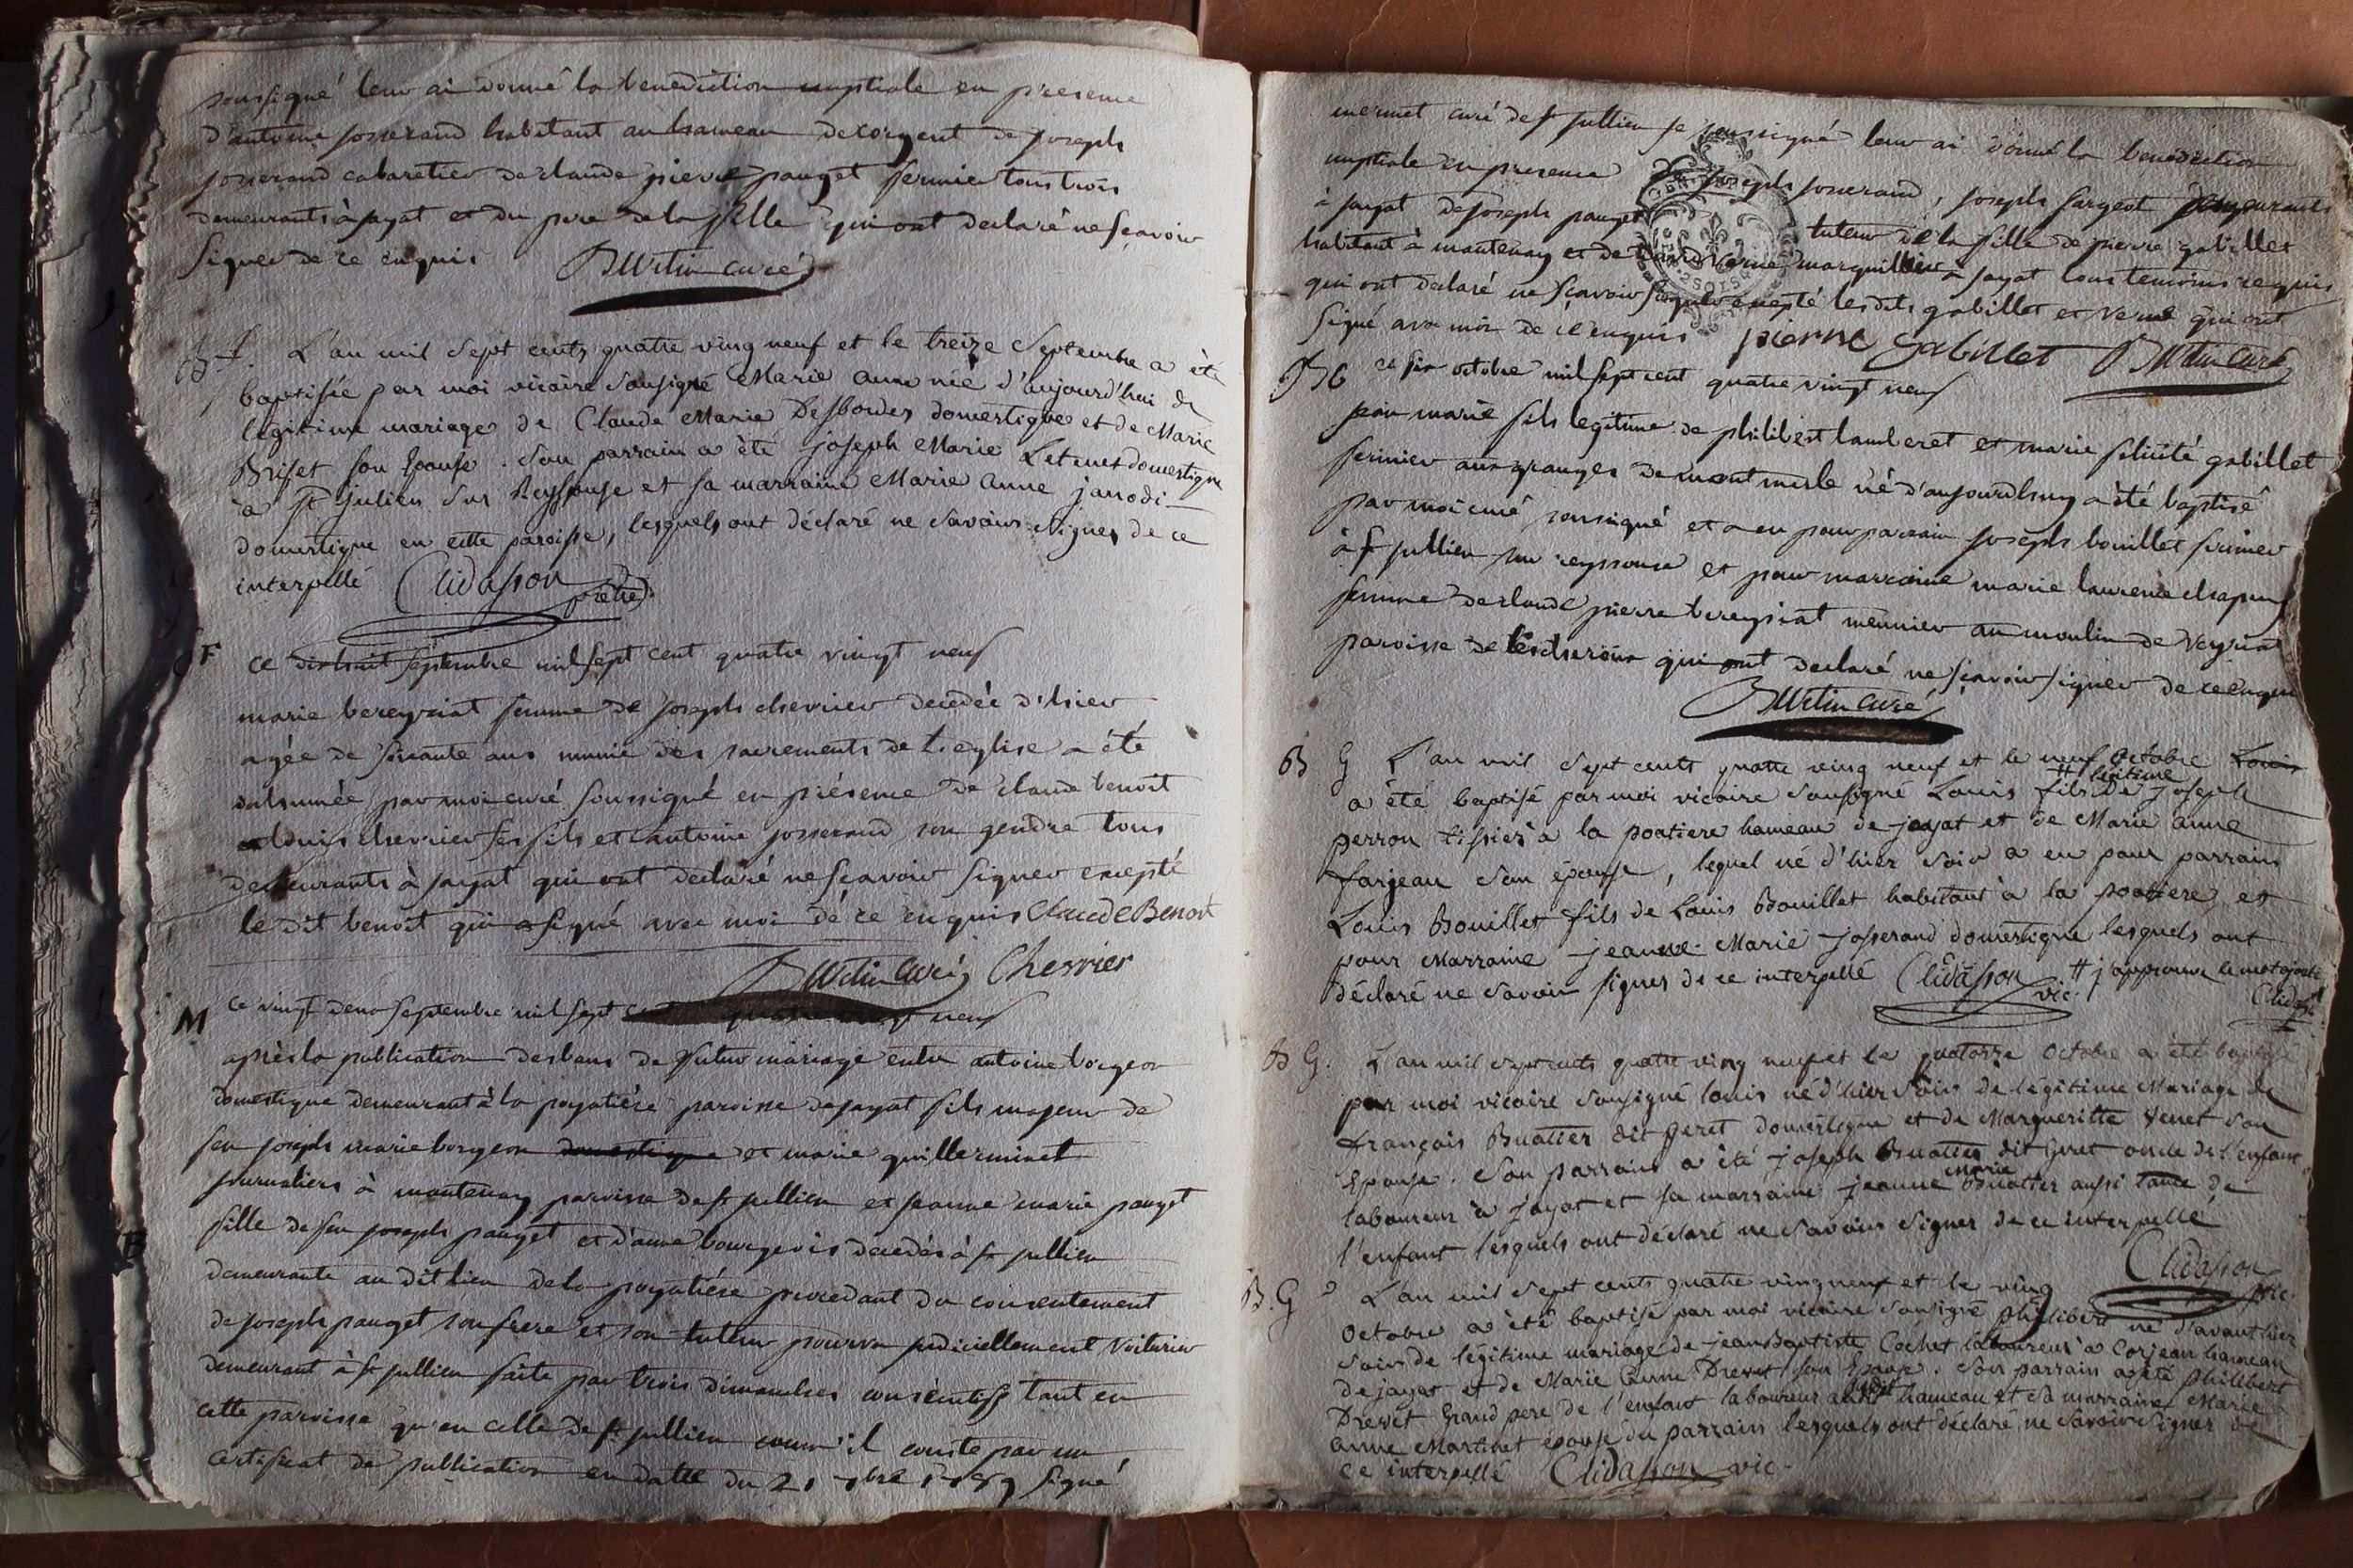 soussigné leur ai donné la benediction nuptiale en presence
d'antoine josserand habitant au hameau de corgent de joseph
josserand cabaretier de claude pierre pauget fermier tous trois
demeurants à jayat et du pere de la fille qui ont declaré ne sçavoir
signer de ce enquis Burtin curé
B f. L'an mil sept cents quatre ving neuf et le treize septembre a été
baptisée par moi vicaire sousigné Marie Anne née d'aujourd'hui de
légitime mariage de Claude Marie Desbordes domestique et de Marie
Brifet son Epouse. Son parrain a été joseph Marie domestique
à St julien sur Reyssouse et sa marraine Marie Anne janodi
domestique en cette paroisse, lesquels ont déclaré ne savoir signer de ce
interpellé Clidasson prêtre
F ce dixhuit septembre mil sept cent quatre vingt neuf
marie bereyziat femme de joseph chevrier decedée d'hier
agée de soixante ans munie des sacrements de L'eglise a été
inhumée par moi curé soussigné en présence de claude benoit
et louis chevrier ses fils et antoine josserand son gendre tous
demeurants à jayat qui ont declaré ne sçavoir signer excepté
le dit benoit qui a signé avec moi de ce enquis Claude Benoit
Burtin Curé Chevrier
M ce vingt deux septembre mil sept cent quatre vingt neuf
après la publication des bans de futur mariage entre antoine borgeon
domestique demeurant à la poyatière paroisse de jayat fils majeur de
feu joseph marie borgeon domestique et marie guillerminet
journaliers à montenay paroisse de st jullien et jeanne marie pauget
fille de feu joseph pauget et d'anne bourgeois decedés à st jullien
demeurante au dit lieu de la poyatière procedant du consentement
de joseph pauget son frere et son tuteur pourvu judiciellement voiturier
demeurant à st jullien faite par trois dimanches consécutifs tant en
cette paroisse qu'en celle de st jullien comm'il conste par un
certificat de publication en datte du 21 7bre 1789 signé
mermet curé de st jullien je soussigné leur ai donné la benediction
nuptiale en presence de joseph josserand, joseph fargeot demeurants
à jayat de joseph pauget tuteur de la fille de pierre gabillet
habitant à montenay et de verne marguillier à jayat tous temoins requis
qui ont declaré ne sçavoir signer excepté lesdits gabillet et verne qui ont
signé avec moi de ce enquis pierre gabillet Burtin Curé
2 SOLS
B G ce six octobre mil sept cent quatre vingt neuf
jean marie fils legitime de philibert lamberet et marie felicité gabillet
fermier aux granges de montmerle né d'aujourdhuy a été baptisé
par moi curé soussigné et a eu pour parain joseph bouillet fermier
à st jullien sur reyssouse et pour marraine marie laurence chapuy
femme de claude pierre bereyziat meunier au moulin de veyriat
paroisse de qui ont declaré ne sçavoir signer de ce enquis
Burtin Curé
B G L'an mil sept cents quatre ving neuf et le neuf octobre Louis
a été baptisé par moi vicaire sousigné Louis fils # légitime de joseph
perron tissier à la poatiere hameau de jayat et de Marie anne
farjeau son épouse, lequel né d'hier soir a eu pour parrain
Louis Bouillet fils de Louis Bouillet habitant à la poatiere et
pour Marraine jeanne Marie josserand domestique lesquels ont
déclaré ne savoir signer de ce interpellé Clidasson vic. # j'approuve le mot ajouté
Clidasson
B G. L'an mil sept cents quatre ving neuf et le quatorze octobre a été baptisé
par moi vicaire sousigné louis né d'hier soir de légitime Mariage de
françois Buatier dit geret domestique et de Margueritte Venet son
Epouse. Son parrain a été joseph Buatier dit geret oncle de l'enfant
laboureur à jayat et sa marraine jeanne Marie Buatier aussi tante de
l'enfant lesquels ont déclaré ne savoir signer de ce interpellé
Clidasson vic.
B. G L'an mil sept cents quatre ving neuf et le ving
Octobre a été baptisé par moi vicaire sousigné philibert né d'avant hier
soir de légitime mariage de jean Baptiste Cochet laboureur à Corjean hameau
de jayat et de Marie Anne Drevet son Epouse. Son parrain a été philibert
Drevet Grand pere de l'enfant laboureur audit hameau et sa marraine Marie
anne Martinet épouse du parrain lesquels ont déclaré ne savoir signer de
ce interpellé Clidasson vic.